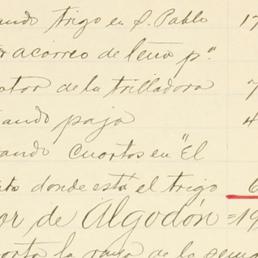 ando trigo en S. Pablo 17
acorreo de leña p".
ator de la trilladora 7
ando paja 4
ando cuartos en "El
donde está el trigo 6
or de Algodón = 19
la de la